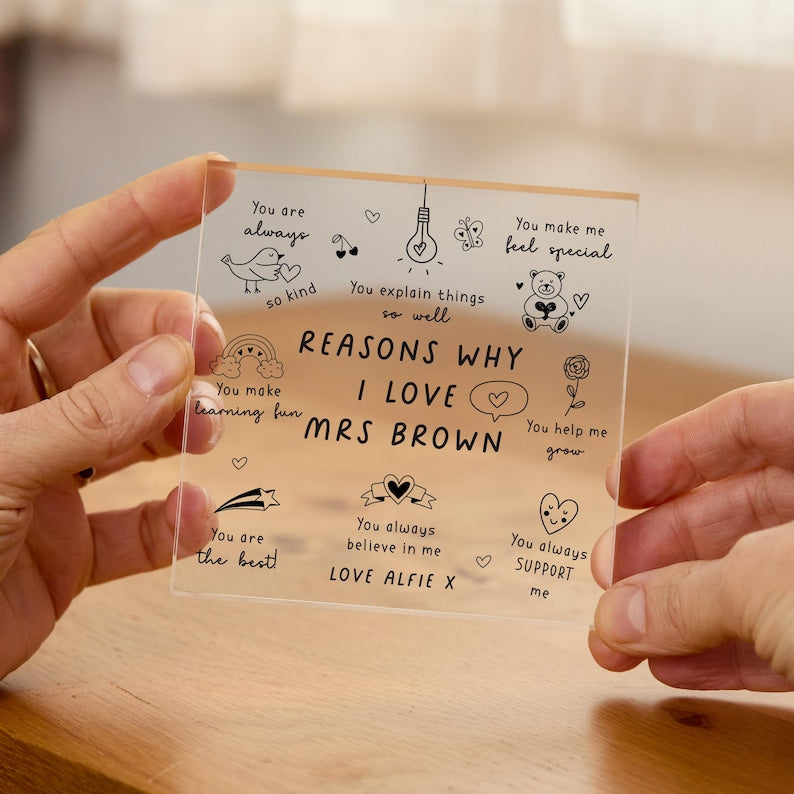 You are
always
so kind
You explain things
so well
You make me
feel special
REASONS WHY
I LOVE
MRS BROWN
You make
learning fun
You help me
grow
You are
the best!
You always
believe in me
You always
SUPPORT
me
LOVE ALFIE X